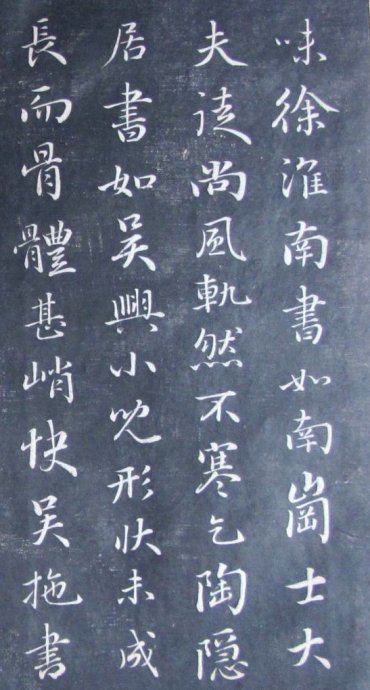 味徐淮南書如南崗士大
夫徒尚風軌然不寒乞陶隠
居書如吳興小兒形狀未成
長而骨體甚峭快吴拖書